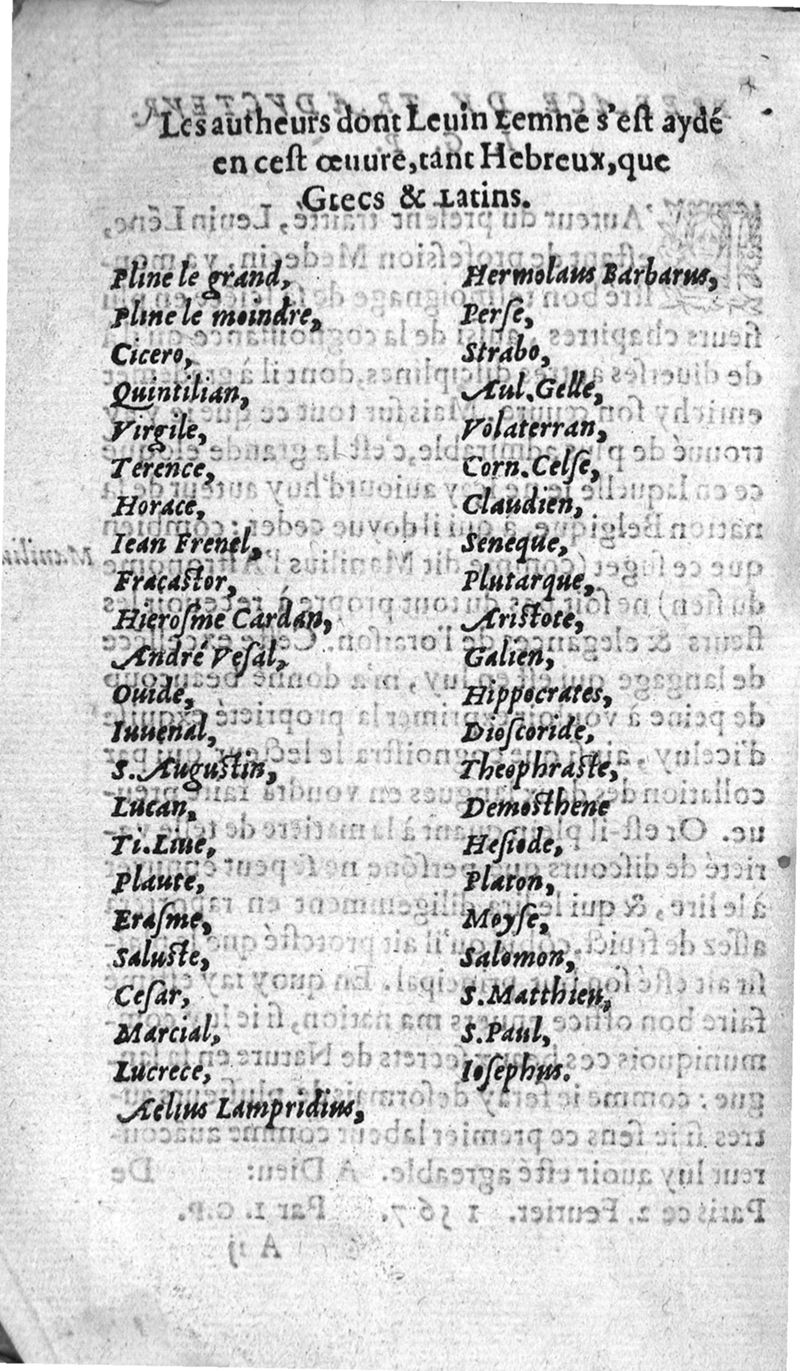 Les autheurs dont Leuin Lemne s'eſt aydé
en ceſt œuure, tant Hebreux, que
Grecs & Latins.
Pline le grand,
Pline le moindre,
Cicero,
Quintilian,
Virgile,
Terence,
Horace,
Iean Frenel,
Fracaſtor,
Hieroſme Cardan,
André Veſal,
Ouide,
Iuuenal,
S. Auguſtin,
Lucan,
Ti. Liue,
Plaute,
Eraſme,
Saluſte,
Ceſar,
Marcial,
Lucrece,
Aelius Lampridius,
Hermolaus Barbarus,
Perſe,
Strabo,
Aul. Gelle,
Volaterran,
Corn. Celſe,
Claudien,
Seneque,
Plutarque,
Ariſtote,
Galien,
Hippocrates,
Dioſcoride,
Theophraſte,
Demoſthene
Heſiode,
Platon,
Moyſe,
Salomon,
S. Matthieu,
S. Paul,
Ioſephus.